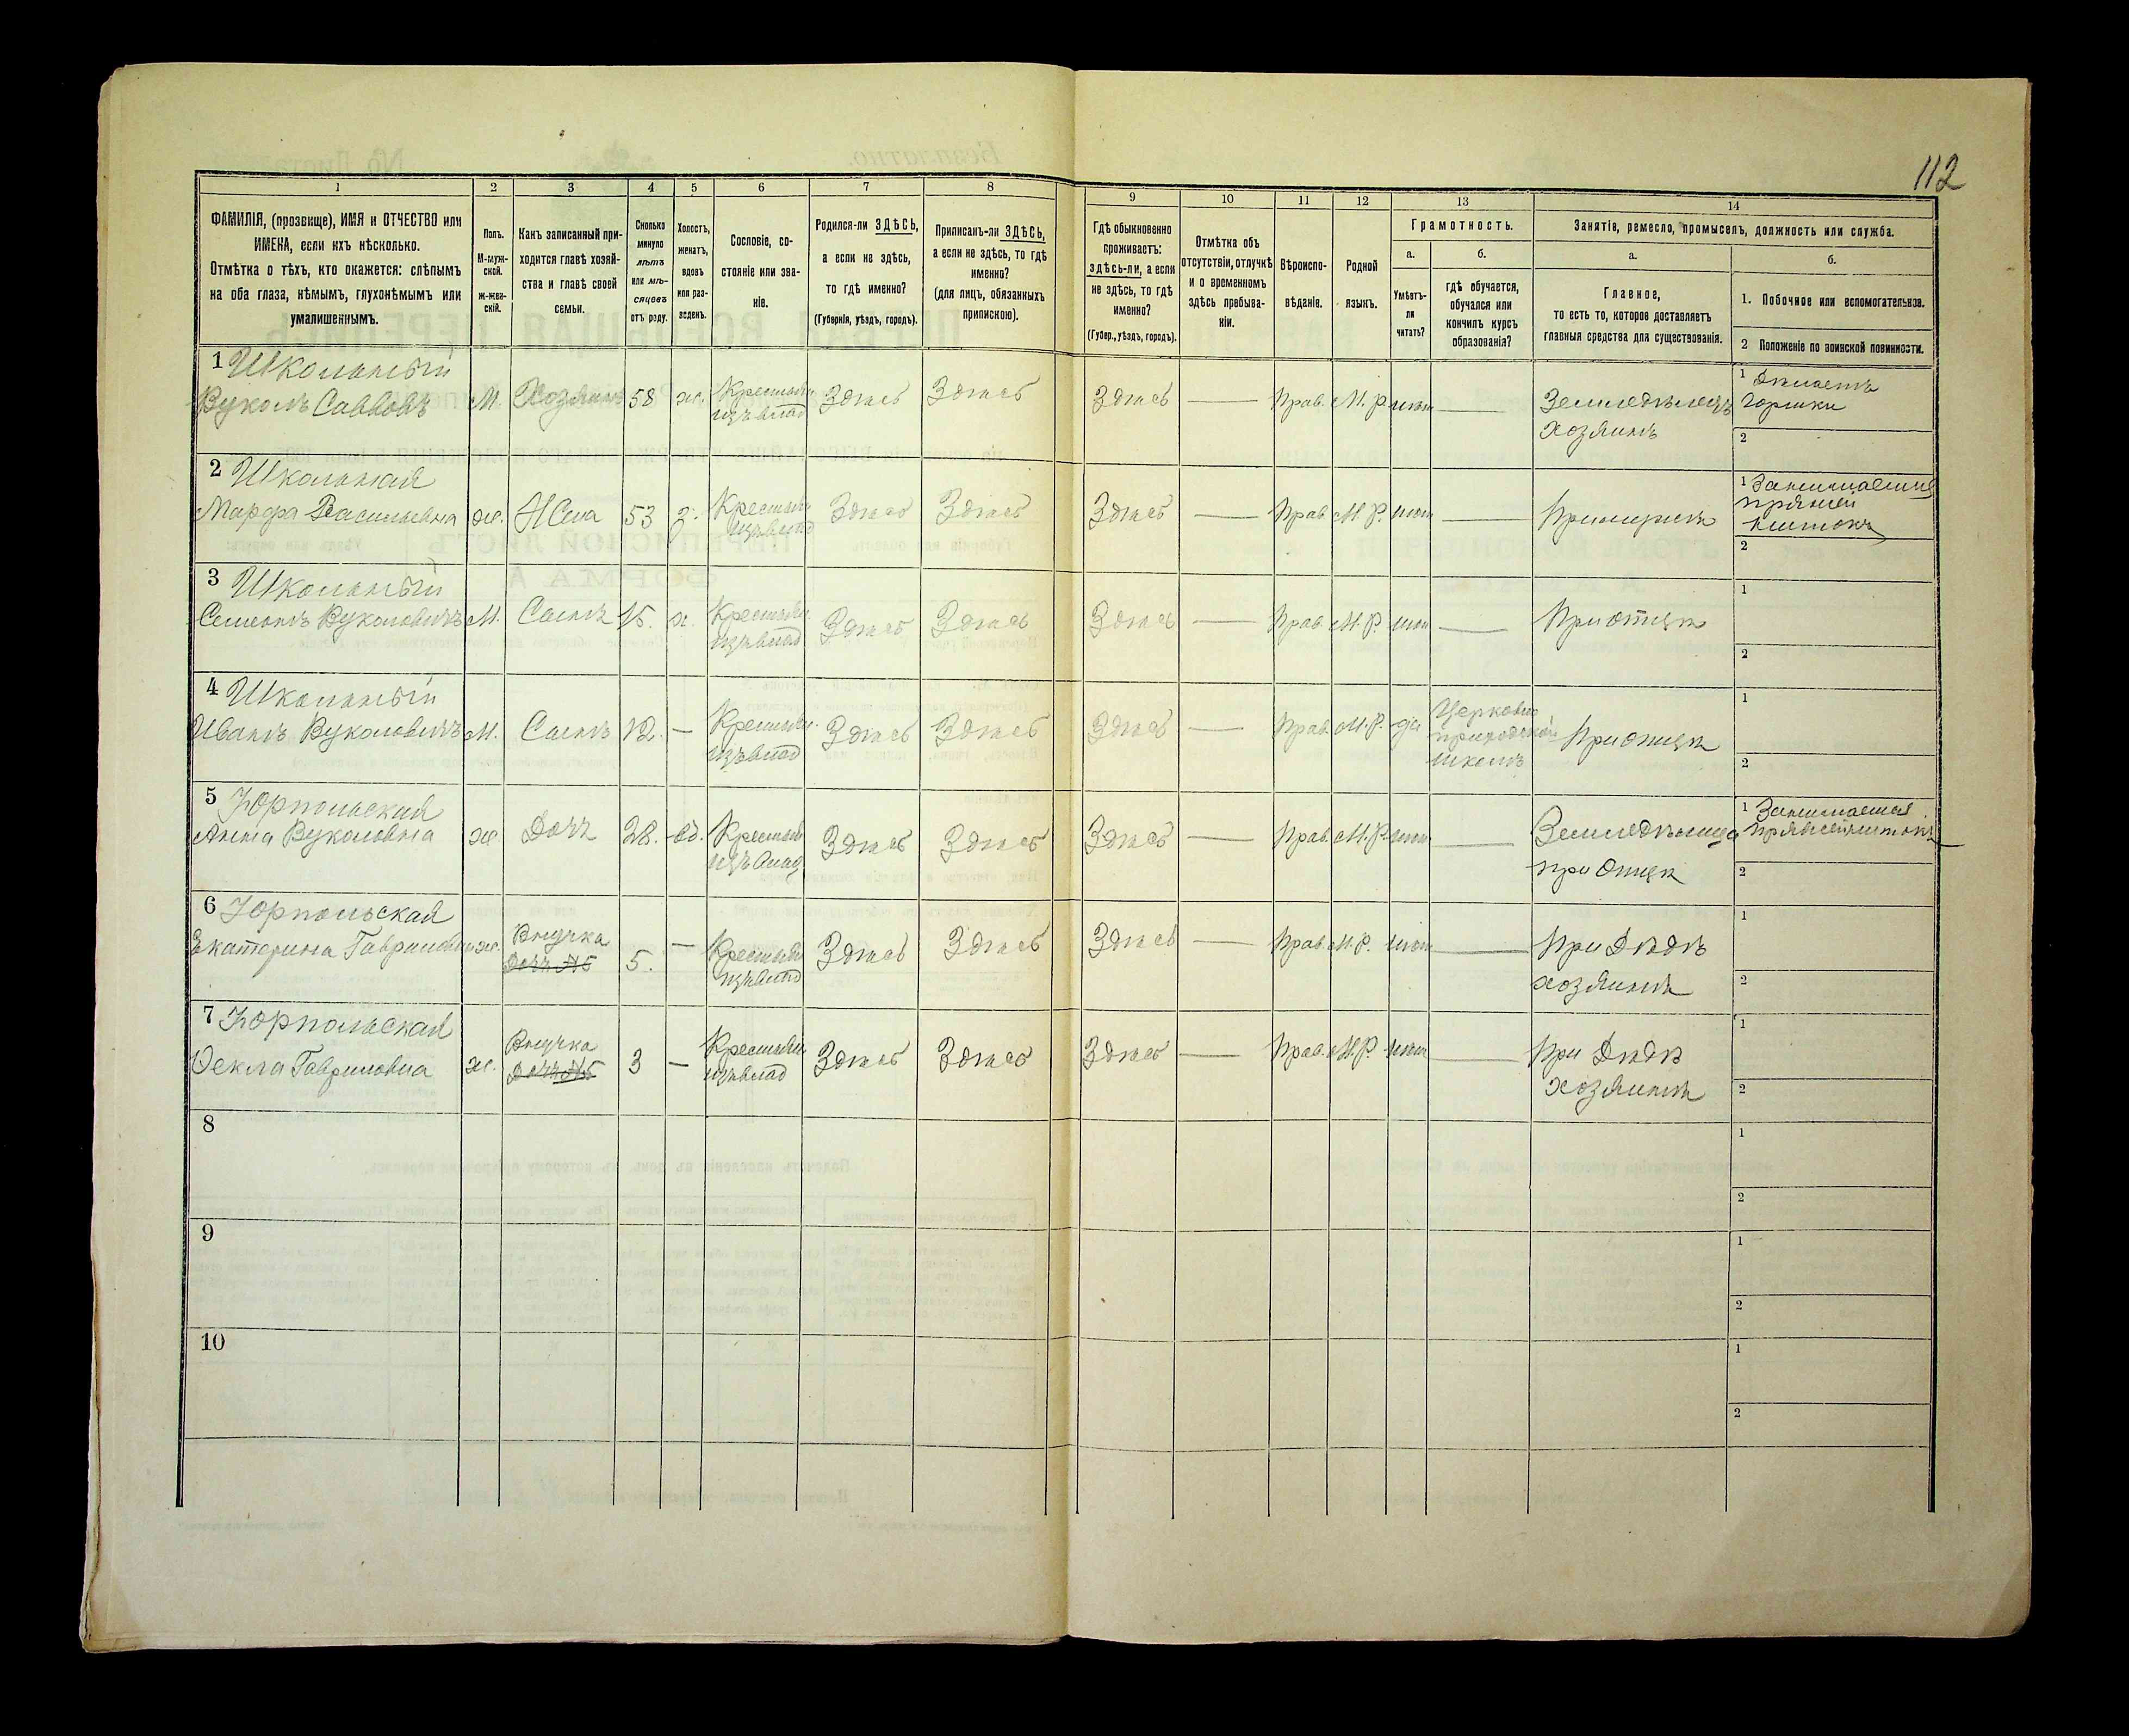 112
1 2 3 4 5 6 7 8 9 10 11 12 13 14
ФАМИЛІЯ, (прозвище), ИМЯ и ОТЧЕСТВО или
ИМЕНА, если ихъ нѣсколько.
Отмѣтка о тѣхъ, кто окажется: слѣпымъ
на оба глаза, нѣмымъ, глухонѣмымъ или
умалишеннымъ.
Полъ.
М-муж-
ской.
ж-жен-
скій.
Какъ записанный при-
ходится главѣ хозяй-
ства и главѣ своей
семьи.
Сколько
минуло
лѣтъ
или мѣ-
сяцевъ
отъ роду.
Холостъ,
женатъ,
вдовъ
или раз-
веденъ.
Сословіе, со-
стояніе или зва-
ніе.
Родился-ли ЗДѢСЬ,
а если не здѣсь,
то гдѣ именно?
(Губернія, уѣздъ, городъ).
Приписанъ-ли ЗДѢСЬ,
а если не здѣсь, то гдѣ
именно?
(для лицъ, обязанныхъ
припискою).
Гдѣ обыкновенно
проживаетъ:
здѣсь-ли, а если
не здѣсь, то гдѣ
именно?
(Губер., уѣздъ, городъ).
Отмѣтка объ
отсутствіи, отлучкѣ
и о временномъ
здѣсь пребыва-
ніи.
Вѣроиспо-
вѣданіе.
Родной
языкъ.
Грамотность.
а.
Умѣетъ-
ли
читать?
б.
гдѣ обучается,
обучался или
кончилъ курсъ
образованія?
Занятіе, ремесло, промыселъ, должность или служба.
а.
Главное,
то есть то, которое доставляетъ
главныя средства для существованія.
б.
1. Побочное или вспомогательное.
2 Положеніе по воинской повинности.
1 Школьный
Вуколъ Саввовъ М. Хозяинъ 58 ж. Крестьян. Здѣсь Здѣсь Здѣсь — Прав. М. Р. нѣт — Земледѣлецъ
изъ влад хозяинъ
1 Дѣлаетъ
горшки
2
2 Школьная
Марфа Васильевна ж. Жена 53 з. Крестьян Здѣсь Здѣсь Здѣсь — Прав М. Р. нѣт —
изъ влад
1 Занимается
пряжей
нитокъ
2
3 Школьный
Семенъ Вуколовичъ М. Сынъ 15. х. Крестьян. Здѣсь Здѣсь Здѣсь — Прав. М. Р. нѣт — При отцѣ
изъ влад
1
2
4 Школьный
Иванъ Вуколовичъ М. Сынъ 12. — Крестьян. Здѣсь Здѣсь Здѣсь — Прав. М. Р. да
изъ влад
Церковно
приходской
школѣ
При отцѣ
1
2
5
Анна Вуколовна ж Дочь 28. вд. Крестьян Здѣсь Здѣсь Здѣсь — Прав. М. Р. нѣт — Земледѣлица
изъ влад при отцѣ
1 Занимается
пряжей нитокъ
2
6
Екатерина Гавриловна ж. Внучка 5. — Крестьян Здѣсь Здѣсь Здѣсь — Прав. М. Р. нѣт — При Дѣдѣ
Дочь №5 изъ влад хозяинѣ
1
2
7
Фекла Гавриловна ж. Внучка 3 — Крестьян Здѣсь Здѣсь Здѣсь — Прав. М. Р. нѣт — При Дѣдѣ
Дочь №5 изъ влад хозяинѣ
1
2
8
1
2
9
1
2
10
1
2